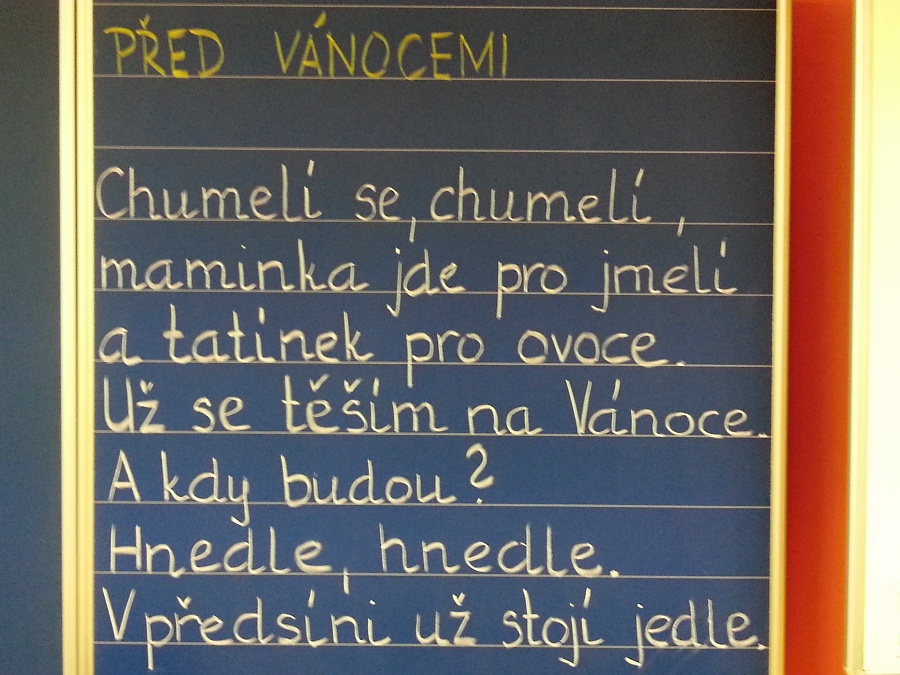 PŘED VÁNOCEMI
Chumelí se, chumelí,
maminka jde pro jmelí
a tatínek pro ovoce.
Už se těším na Vánoce.
A kdy budou?
Hnedle, hnedle.
V předsíni už stojí jedle.